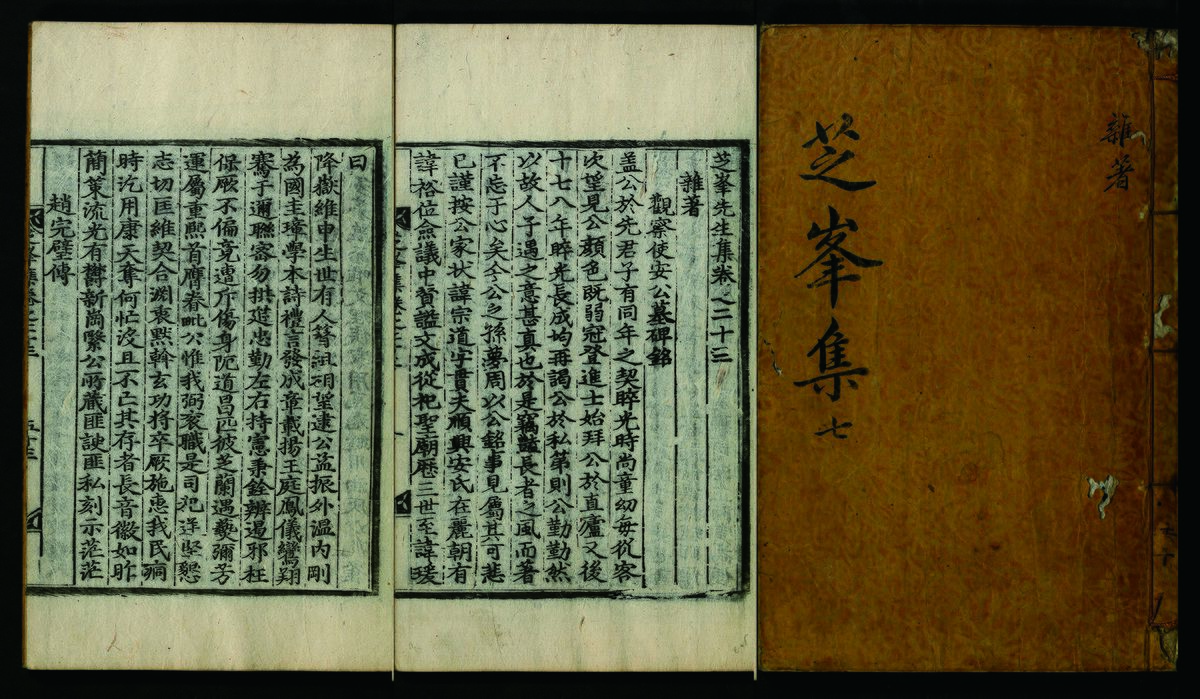 雜著
芝峯集 七
芝峯先生集卷之二十三
雜著
觀察使安公墓碑銘
盖公於先君子有同年之契睟光時尚童幼每從客
次望見公顔色既弱冠登進士始拜公於直廬又後
十七八年睟光長成均再謁公於私第則公勤勤然
以故人子遇之意甚真也於是竊長者之風而著
不忘于心矣今公之孫夢周以公銘事見屬其可悲
已謹按公家狀諱宗道字貫夫順興安氏在麗朝有
諱裕位僉議中贊謚文成從祀聖廟歷三世至諱瑗
曰
降嶽維申生世有人簪相望逮公孟振外溫内剛
為國圭璋學本詩禮言發成章載揚王庭鳳儀鸞翔
騫于邇聯密勿拱忠勤左右持憲秉銓辨遏邪枉
保厥不偏竟遭斥傷身阨道昌匹彼芝蘭遇爇彌芳
運屬重熙首膺眷毗公惟我弼衮職是司堅懇
志切匡維契合淵衷默斡玄功將卒厥施惠我民痌
時汔用康天奪何忙没且不亡其存者長音徽如昨
簡策流光有鬱新崗繄公所藏匪諛匪私刻示茫茫
趙完璧傳